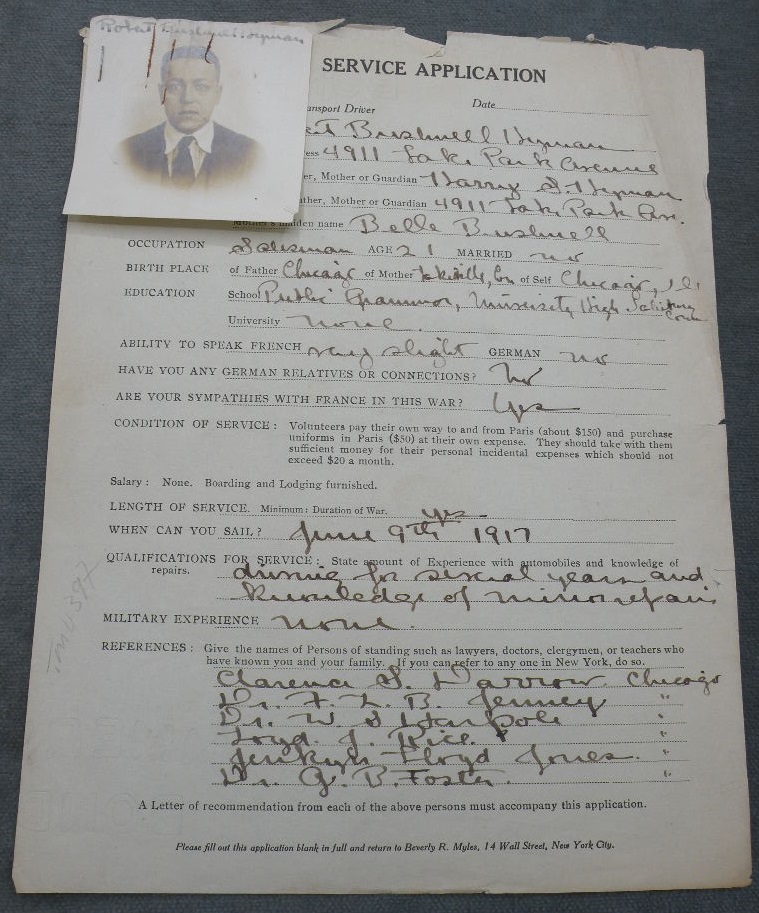 Robert Bushnell Hyman
SERVICE APPLICATION
ansport Driver Date
ert Bushnell Hyman
ess 4911 Lake Park Avenue
er, Mother or Guardian Harry S. Hyman
ather, Mother or Guardian 4911 Lake Park Ave.
Mother's maiden name Belle Bushnell
OCCUPATION Salesman AGE 21 MARRIED no
BIRTH PLACE of Father Chicago of Mother of Self Chicago, Ill
EDUCATION School Public Grammor, University High Salisbury
Conn
University none.
ABILITY TO SPEAK FRENCH very slight GERMAN no
HAVE YOU ANY GERMAN RELATIVES OR CONNECTIONS? No
ARE YOUR SYMPATHIES WITH FRANCE IN THIS WAR? Yes
CONDITION OF SERVICE: Volunteers pay their own way to and from Paris (about $150) and purchase
uniforms in Paris ($50) at their own expense. They should take with them
sufficient money for their personal incidental expenses which should not
exceed $20 a month.
Salary: None. Boarding and Lodging furnished.
LENGTH OF SERVICE. Minimum: Duration of War. yes
WHEN CAN YOU SAIL? June 9th 1917
QUALIFICATIONS FOR SERVICE: State amount of Experience with automobiles and knowledge of
repairs. driving for several years and
knowledge of minor repairs
MILITARY EXPERIENCE none.
REFERENCES: Give the names of Persons of standing such as lawyers, doctors, clergymen, or teachers who
have known you and your family. If you can refer to any one in New York, do so.
Clarence S. Darrow. Chicago
Dr. F. L. B. Jenney "
Dr. W. "
Loyd J. "
Jenkyn Lloyd Jones. "
Dr. G. B. Foster. "
A Letter of recommendation from each of the above persons must accompany this application.
Please fill out this application blank in full and return to Beverly R. Myles, 14 Wall Street, New York City.